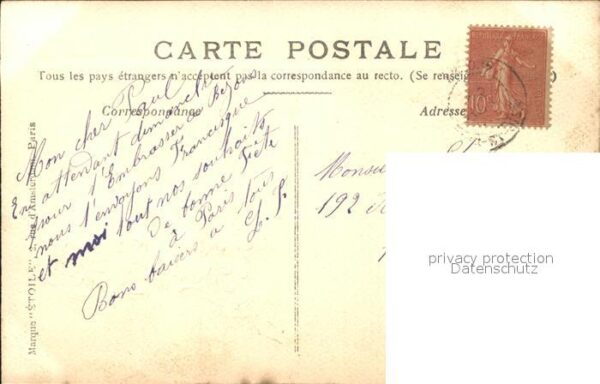 CARTE POSTALE
Tous les pays étrangers n'acceptent pas la correspondance au recto. (Se renseign
Correspondance
Adresse
Mon cher Paul
En attendant dimanche
pour t'Embrasser de
nous t'envoyons Francisque
et moi tout nos souhaits
De bonne Fête
à Paris
Bons baisers à tous
Monsieu
192
REPUBLIQUE FRANÇAISE
10
Marque "ÉTOILE" Paris
privacy protection
Datenschutz